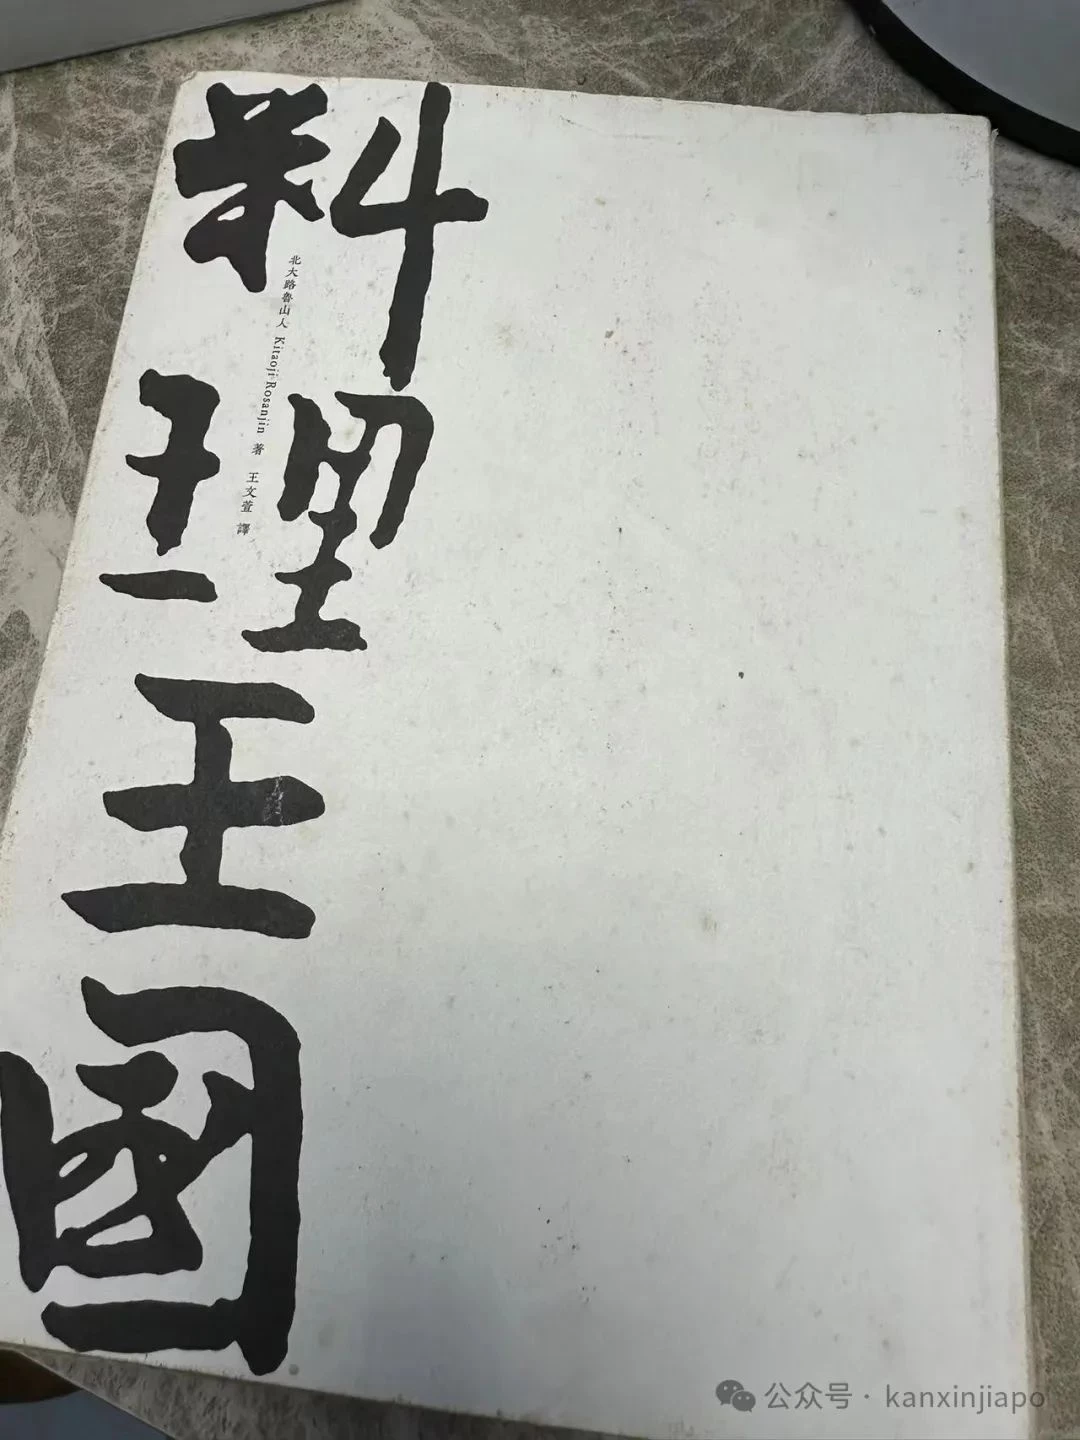 料理王國
北大路魯山人 Kitaoji Rosanjin 著 王文萱 譯
公众号 · kanxinjiapo